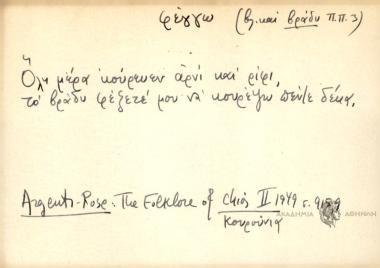 φέγγω (βλ. και βράδυ Π.Π. 3)
Ὅλη μέρα κούρευεν ἀρνί καί ρίφι,
τό βράδυ φέξετέ μου νά κουρέψω πέντε δέκα.
Argenti-Rose: The Folklore of Chios II 1949 σ. 959
Κουρούνια
ΑΚΑΔΗΜΙΑ ΑΘΗΝΩΝ